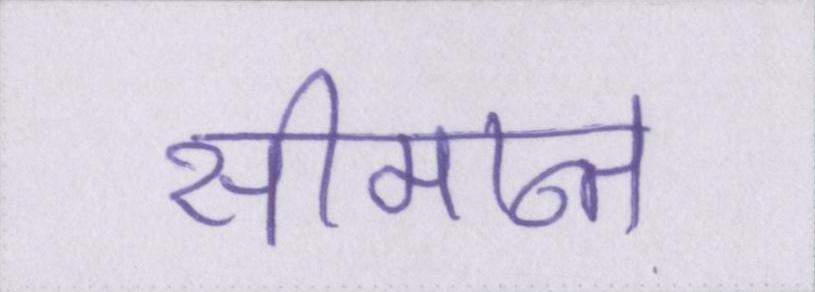 सीमान्त